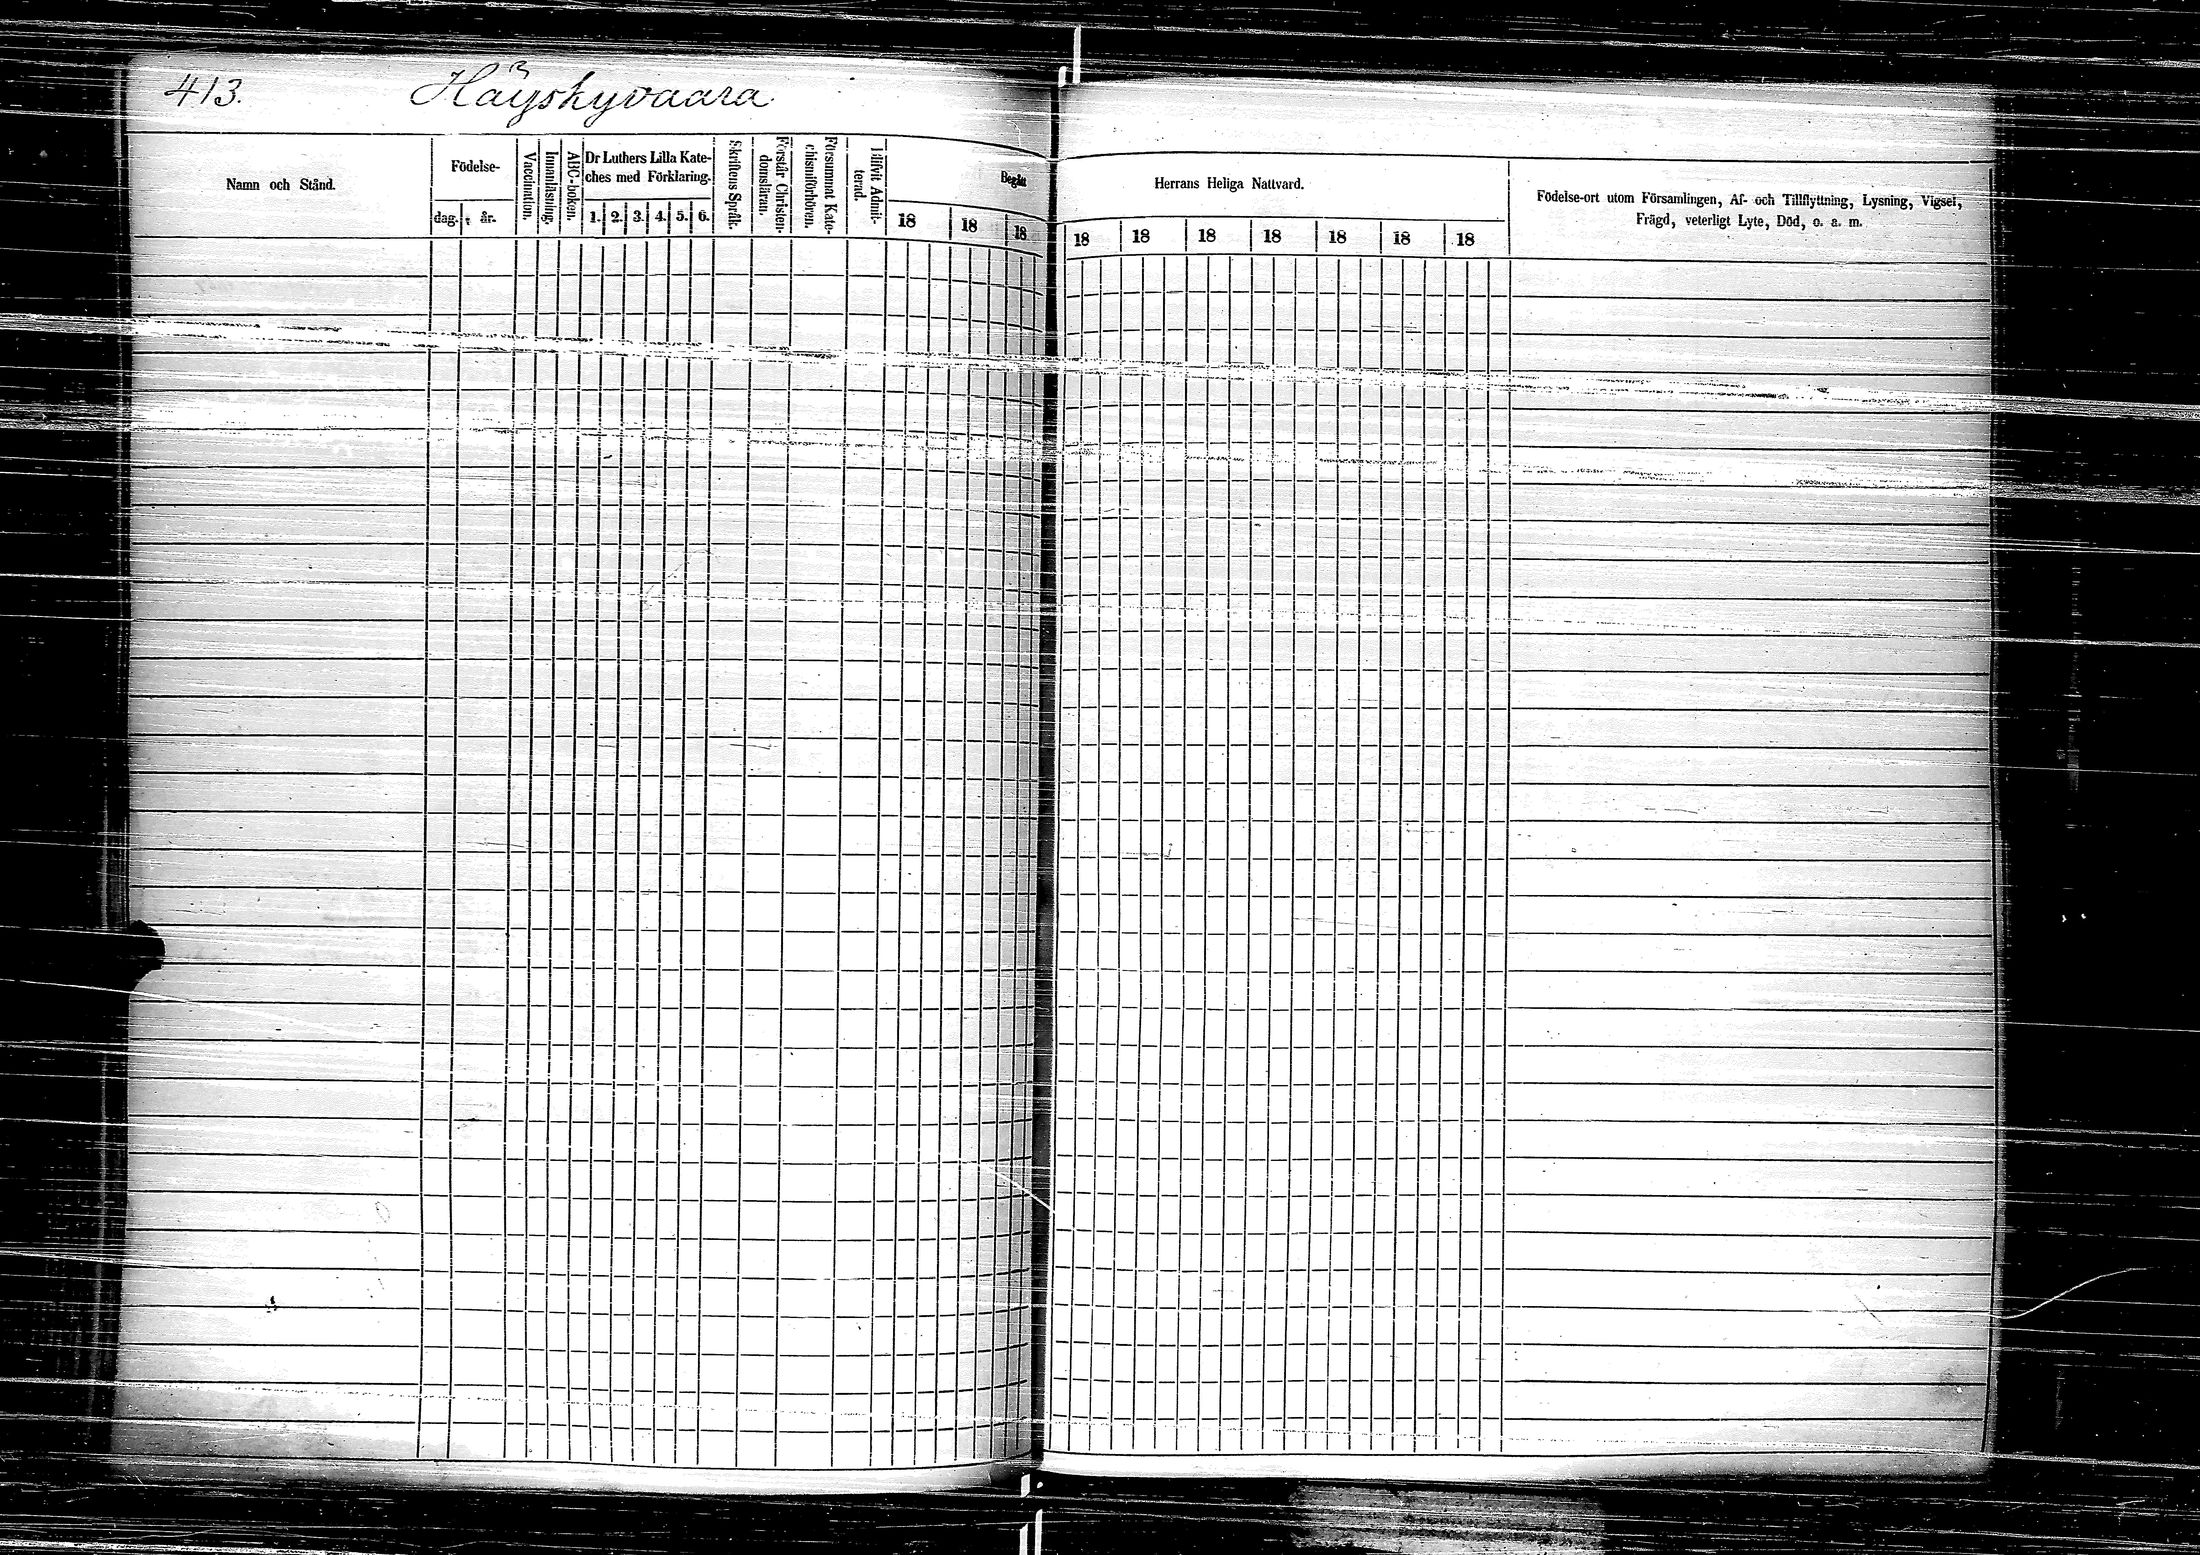 413. Häyskyvaara
Namn och Stånd.
Födelse-
dag. år.
Vaccination.
Innanläsning.
ABC-boken.
Dr Luthers Lilla Kate-
ches med Förklaring.
1. 2. 3. 4. 5. 6.
Skriftens Språk.
Förstår Christen-
domsläran.
Försummat Kate-
chismiförhören.
Blifvit Admit-
terad.
Begått
18 18 18
Herrans Heliga Nattvard.
18 18 18 18 18 18 18
Födelse-ort utom Församlingen, Af- och Tillflyttning, Lysning, Vigsel,
Frägd, veterligt Lyte, Död, o. a. m.